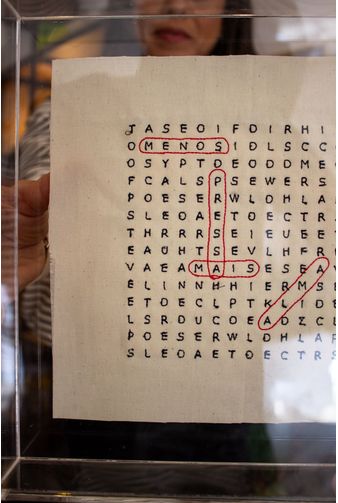 TASEOIFOIRHI
OMENOSIDLSCC
OSYPTDEODDME
FCALSPSEWERS
POESERWLOHLA
SLEOAETOECTR
THRRRSEIEUEE
EAOHTSEVLHFR
VAEAMAISESEA
ELINNHHIERMS
ETOECLPTKLIDE
LSRDUCOEADZCL
POESERWLDHLAF
SLEOAETOECTRS